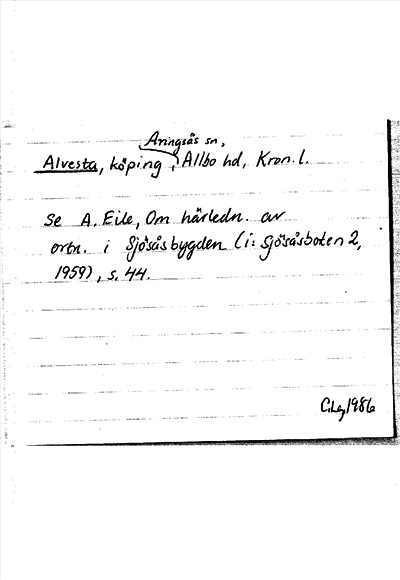 Aringsås sn,
Alvesta, köping, Allbo hd, Kron. l.
Se A. Eile, Om härledn. av
ortn. i Sjösåsbygden (i: Sjösåsboken 2,
1959), s. 44.
1986